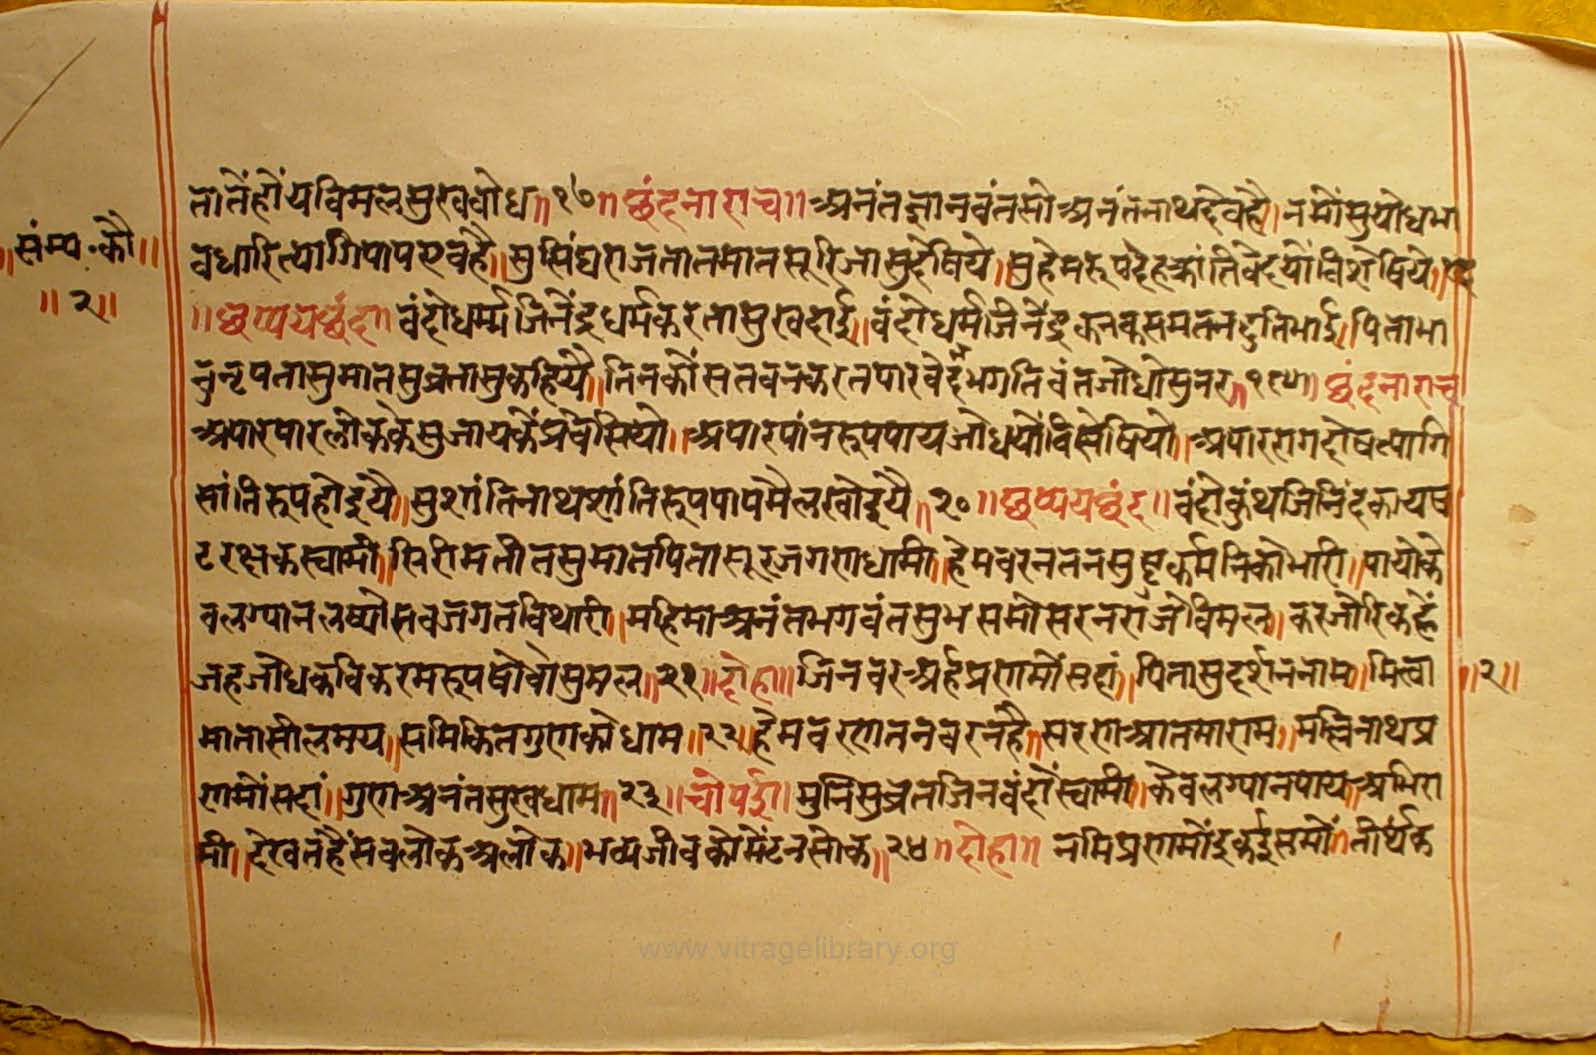 तातैंहोंयविमलसुखबोध॥१७॥छंदनाराच॥अनंतज्ञानवंतसोअनंतनाथदेवहै।नमोंसुयोधभा
॥संम्य.कौ॥
वधारित्यागिपापएवहै॥सुसिंघराजतातमातसूरिजासुदेषिये॥सुहेमरूपदेहक्रांतिवेदयोंविशेषिये॥
॥२॥
॥छप्पयछंद॥वंदोधर्म्मजिनेंद्रधर्मकरतासुखदाई।वंदोधर्मजिनेंद्रकनकसमतनदुतिभाई।पिताभा
नुनृपतासुमातसुव्रतासुकहिय्यै॥तिनकौंसतवनकरतपारवेदनभगतिवंतजोधासुनर॥१९॥छंदनाराच
अपारपारलोककेसुजायकैंप्रवेसियो॥अपारपांनरूपपायजोधयोंविसेषियो।अपाररागदोषत्यागि
सांतिरूपहोइयै॥सुशांतिनाथशांतिरूपपापमैलखोइयै॥२०॥छप्पयछंद॥वंदोकुंथजिनिंदकायष
टरक्षकस्वामी॥सिरीमतीतसुमातपितासूरजगराधामी।हेमवरनतनसुष्टकर्मनिकोभारी॥पायोके
वलग्यानलष्योसबजगतविथारी॥महिमाअनंतभगवंतसुभसमोसरनराजेविमल।करजोरिकहैं
जहजोधकविकरमरूपषोवोसुमल॥२१॥दोहा॥जिनवरअर्हप्रणमोंसदां।पितासुदर्शननाम॥मित्रा
॥२॥
मातासीलमय॥समिकितगुणकोधाम॥२२॥हेमवरणतनवरनहै॥सरणआतमाराम॥मल्लिनाथप्र
णमोंसदां॥गुणअनंतसुखधाम॥२३॥चौपई॥मुनिसुव्रतजिनवंदोंस्वामी।केवलग्यानपायअभिरा
मी॥देखतहैंसबलोकअलोक॥भव्यजीवकोमेंटनसोक॥२४॥दोहा॥नमिप्रणमोंइकईसमों॥तीर्थक
www.vitragelibrary.org